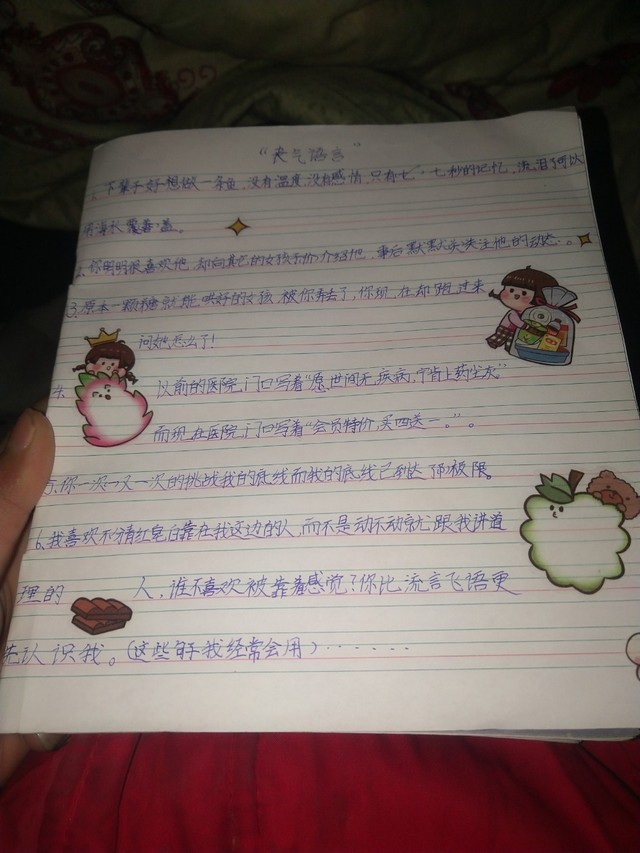 "丧气语言"
1、下辈子好想做一条鱼，没有温度，没有感情，只有七、七秒的记忆，流泪了可以
用海水覆盖盖。
2、你明明很喜欢他，却向其它的女孩子介绍他，事后默默关注他的动态。。
3、原本一颗糖就能哄好的女孩，被你弄丢了，你现在却跑过来
问她怎么了！
4、以前的医院门口写着"愿世间无疾病，宁肯上药尘灰"
而现在医院门口写着"会员特价，买四送一。"。
5、你一次又一次的挑战我的底线而我的底线已到达了极限。
6、我喜欢不分青红皂白靠在我这边的人，而不是动不动就跟我讲道
理的人，谁不喜欢被靠着感觉？你比流言飞语更
先认识我。（这些句子我经常会用）······